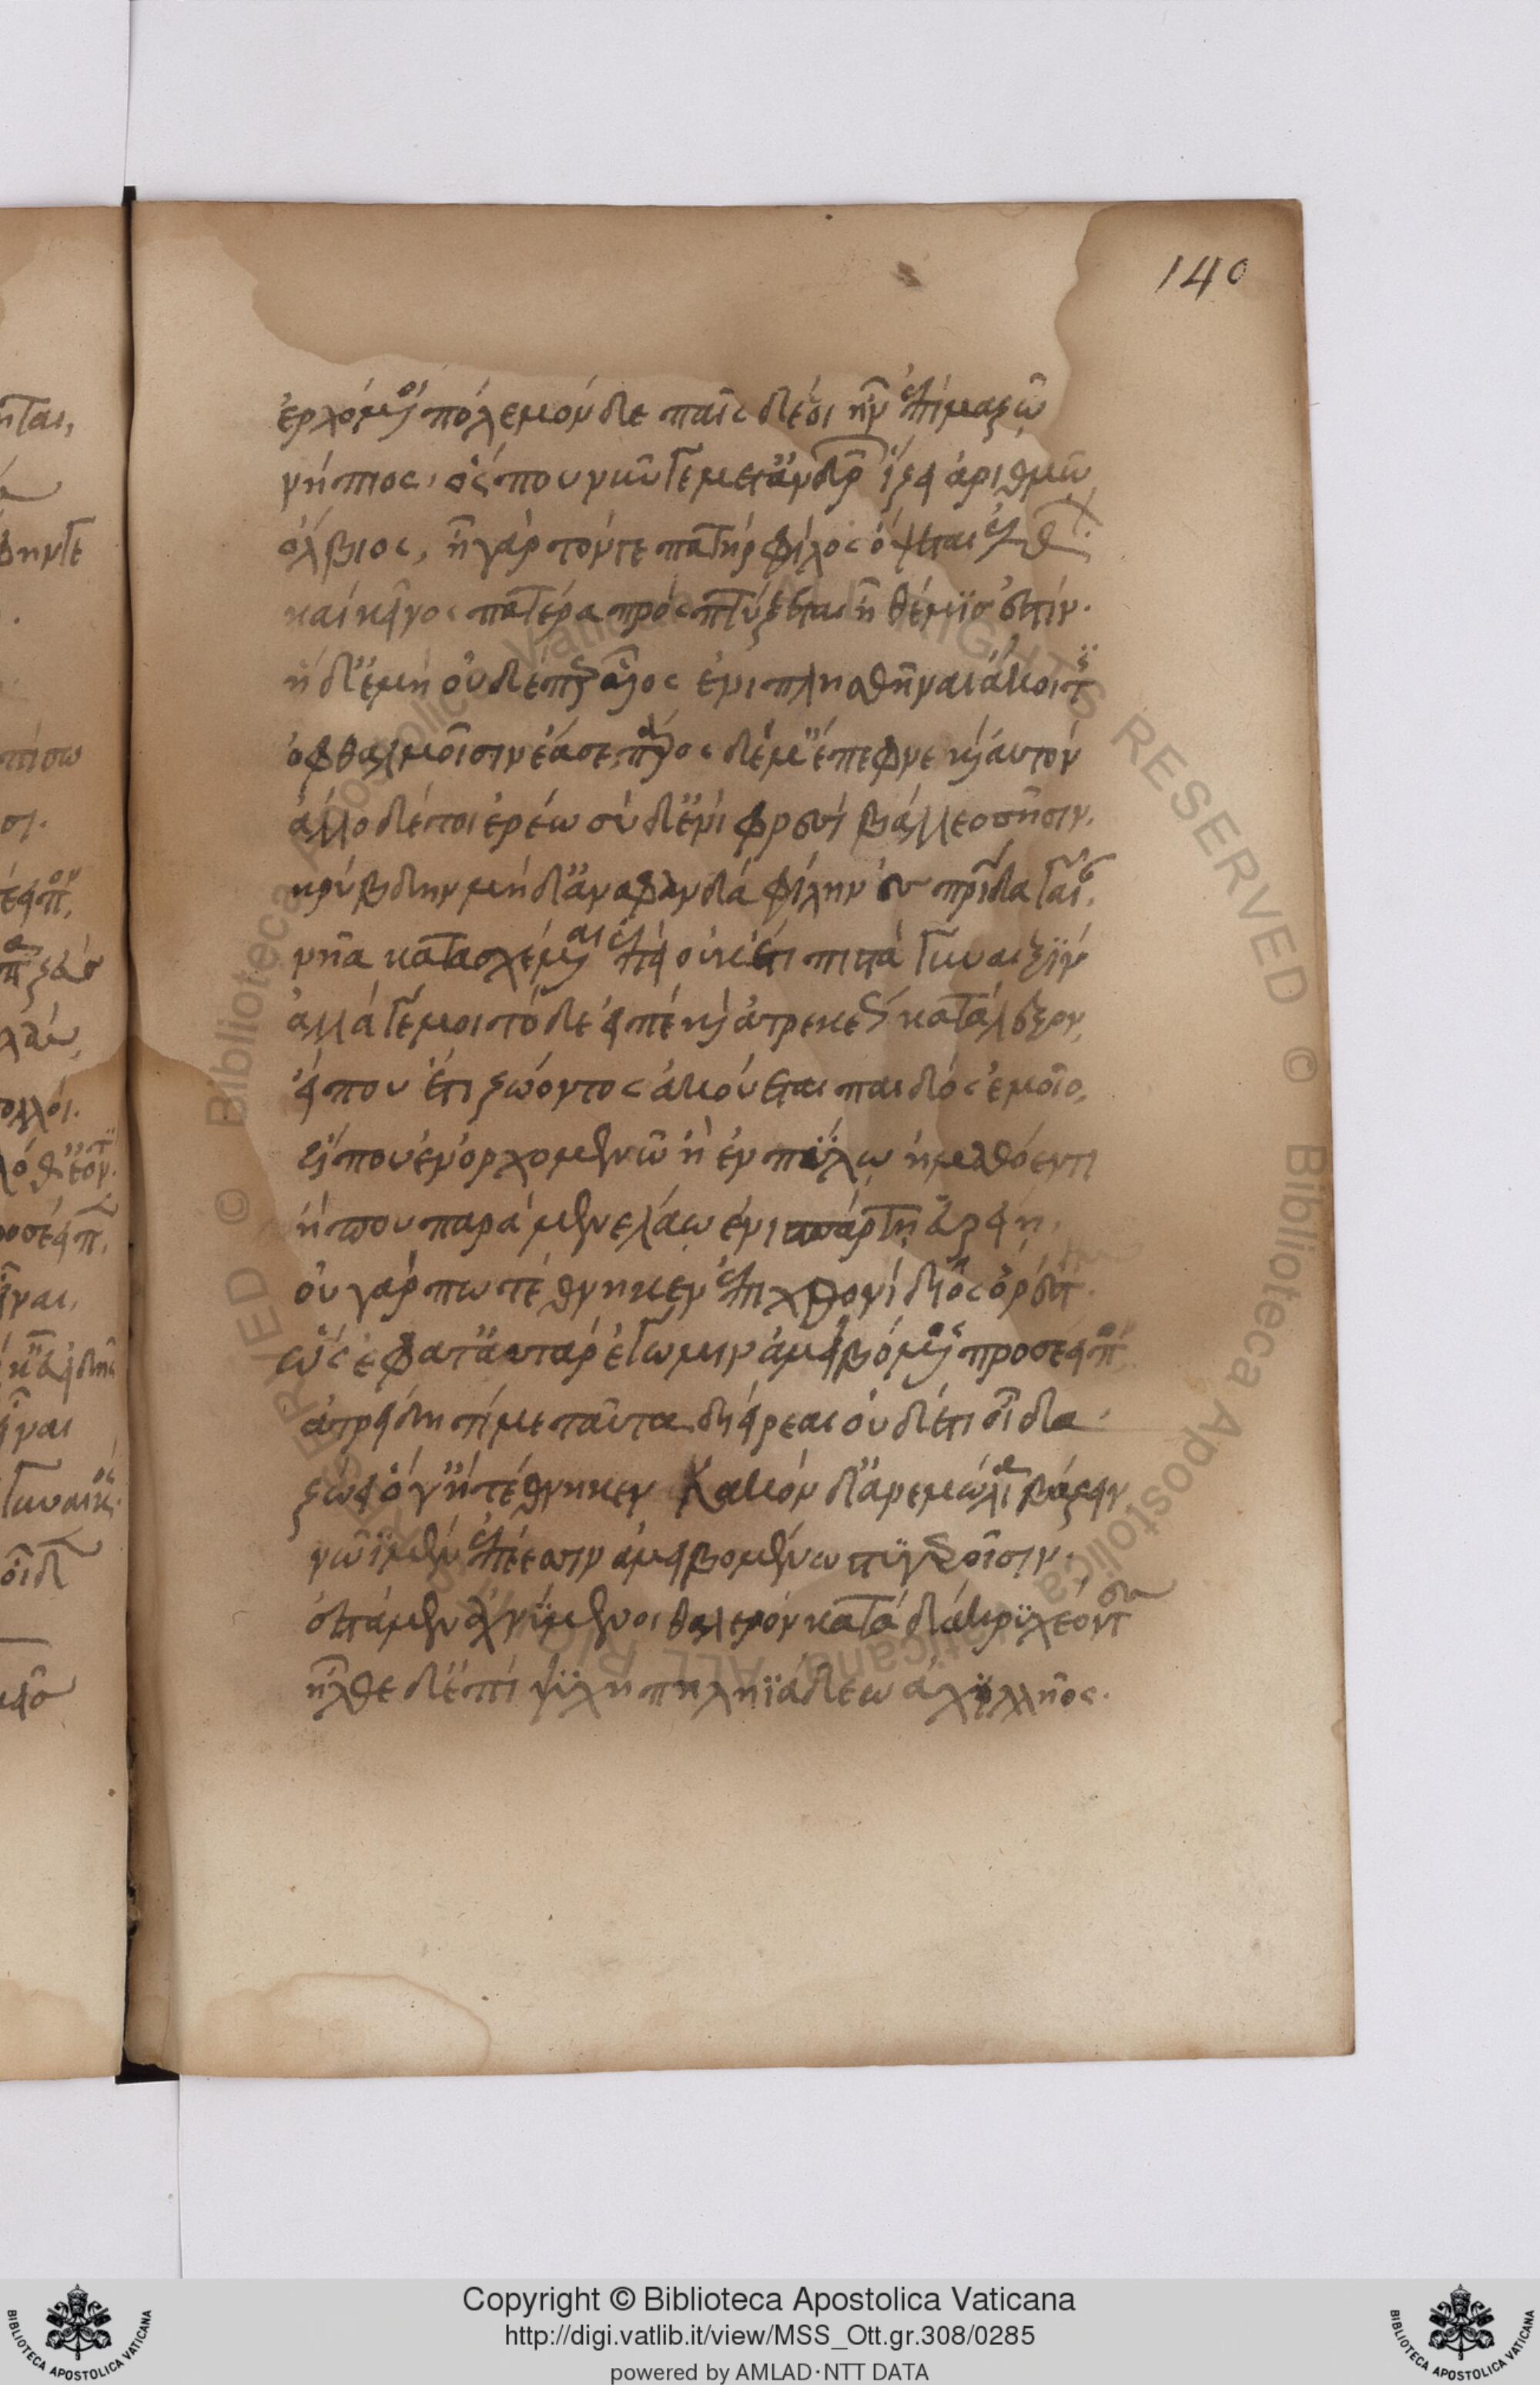 140
ἐρχόμενοι πόλεμον δε παῖς δέ οἱ ἦν ἐπὶ μαζῶ
νήπιος, ὅς που νῦν γε μετ' ἀνδρῶν ἵζει ἀριθμῶ
ὄλβιος, ἦ γὰρ τόν γε πατὴρ φίλος ὄψεται ἐλθών.
καὶ κεῖνος πατέρα προσπτύξεται ἣ θέμις ἐστίν.
ἡ δ' ἐμὴ οὐδέ περ υἷος ἐνιπλησθῆναι ἄκοιτις
ὀφθαλμοῖσιν ἔασε, πάρος δέ μ' ἔπεφνε καὶ αὐτόν
ἄλλο δέ τοι ἐρέω σὺ δ' ἐνὶ φρεσὶ βάλλεο σῆσιν.
κρύβδην μὴ δ' ἀναφανδὰ φίλην ἐς πατρίδα γαῖαν.
νῆα κατασχέμεναι ἐπεὶ οὐκέτι πιστὰ γυναιξίν
ἀλλ' ἄγε μοι τόδε εἰπὲ καὶ ἀτρεκέως κατάλεξον,
εἴ που ἔτι ζώοντος ἀκούεται παιδὸς ἐμοῖο,
εἴ που ἐν ὀρχομενῶ ἢ ἐν πύλω ἠμαθόεντι
ἤ που παρὰ μενελάω ἐνὶ σπάρτη εὐρείη.
οὐ γάρ πω τέθνηκεν ἐπὶ χθονὶ δῖος ὀρέστης.
ὣς ἔφατ' αὐτὰρ ἐγώ μιν ἀμειβόμενος προσέειπον
ἀτρείδη τί με ταῦτα διείρεαι οὐδέ τι οἶδα.
ζώει ὅ γ' ἢ τέθνηκεν κακὸν δ' ἀνεμώλια βάζειν
νῶϊ μὲν ἐπέεσσιν ἀμειβομένω στυγεροῖσιν.
ἕσταμεν ἀχνύμενοι θαλερὸν κατὰ δάκρυ χέοντες
ἦλθε δ' ἐπὶ ψυχὴ πηληϊάδεω ἀχιλλῆος.
Copyright © Biblioteca Apostolica Vaticana
http://digi.vatlib.it/view/MSS_Ott.gr.308/0285
powered by AMLAD·NTT DATA